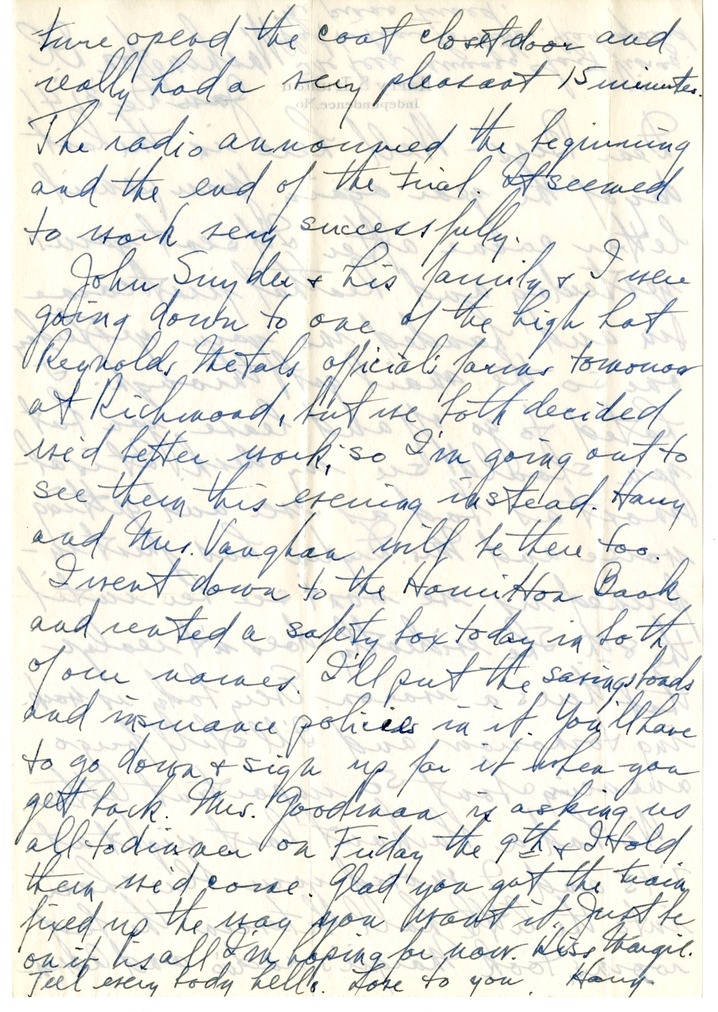 ture opend the coat closet door and
really had a very pleasant 15 minutes.
The radio announced the beginning
and the end of the trial. It seemed
to work very successfully.
John Snyder & his family & I were
going down to one of the high hat
Reynolds Metals officials farms tomorrow
at Richmond, but we both decided
we'd better work; so I'm going out to
see them this evening instead. Harry
and Mrs. Vaughan will be there too.
I went down to the Hamilton Bank
and rented a safety box today in both
of our names. I'll put the savings bonds
and insurance policies in it. You'll have
to go down & sign up for it when you
get back. Mrs. Goodman is asking us
all to dinner on Friday the 9th & I told
them we'd come. Glad you got the train
fixed up the way you want it. Just be
on it is all I'm hoping for now. Kiss Margie.
Tell every body hello. Love to you. Harry